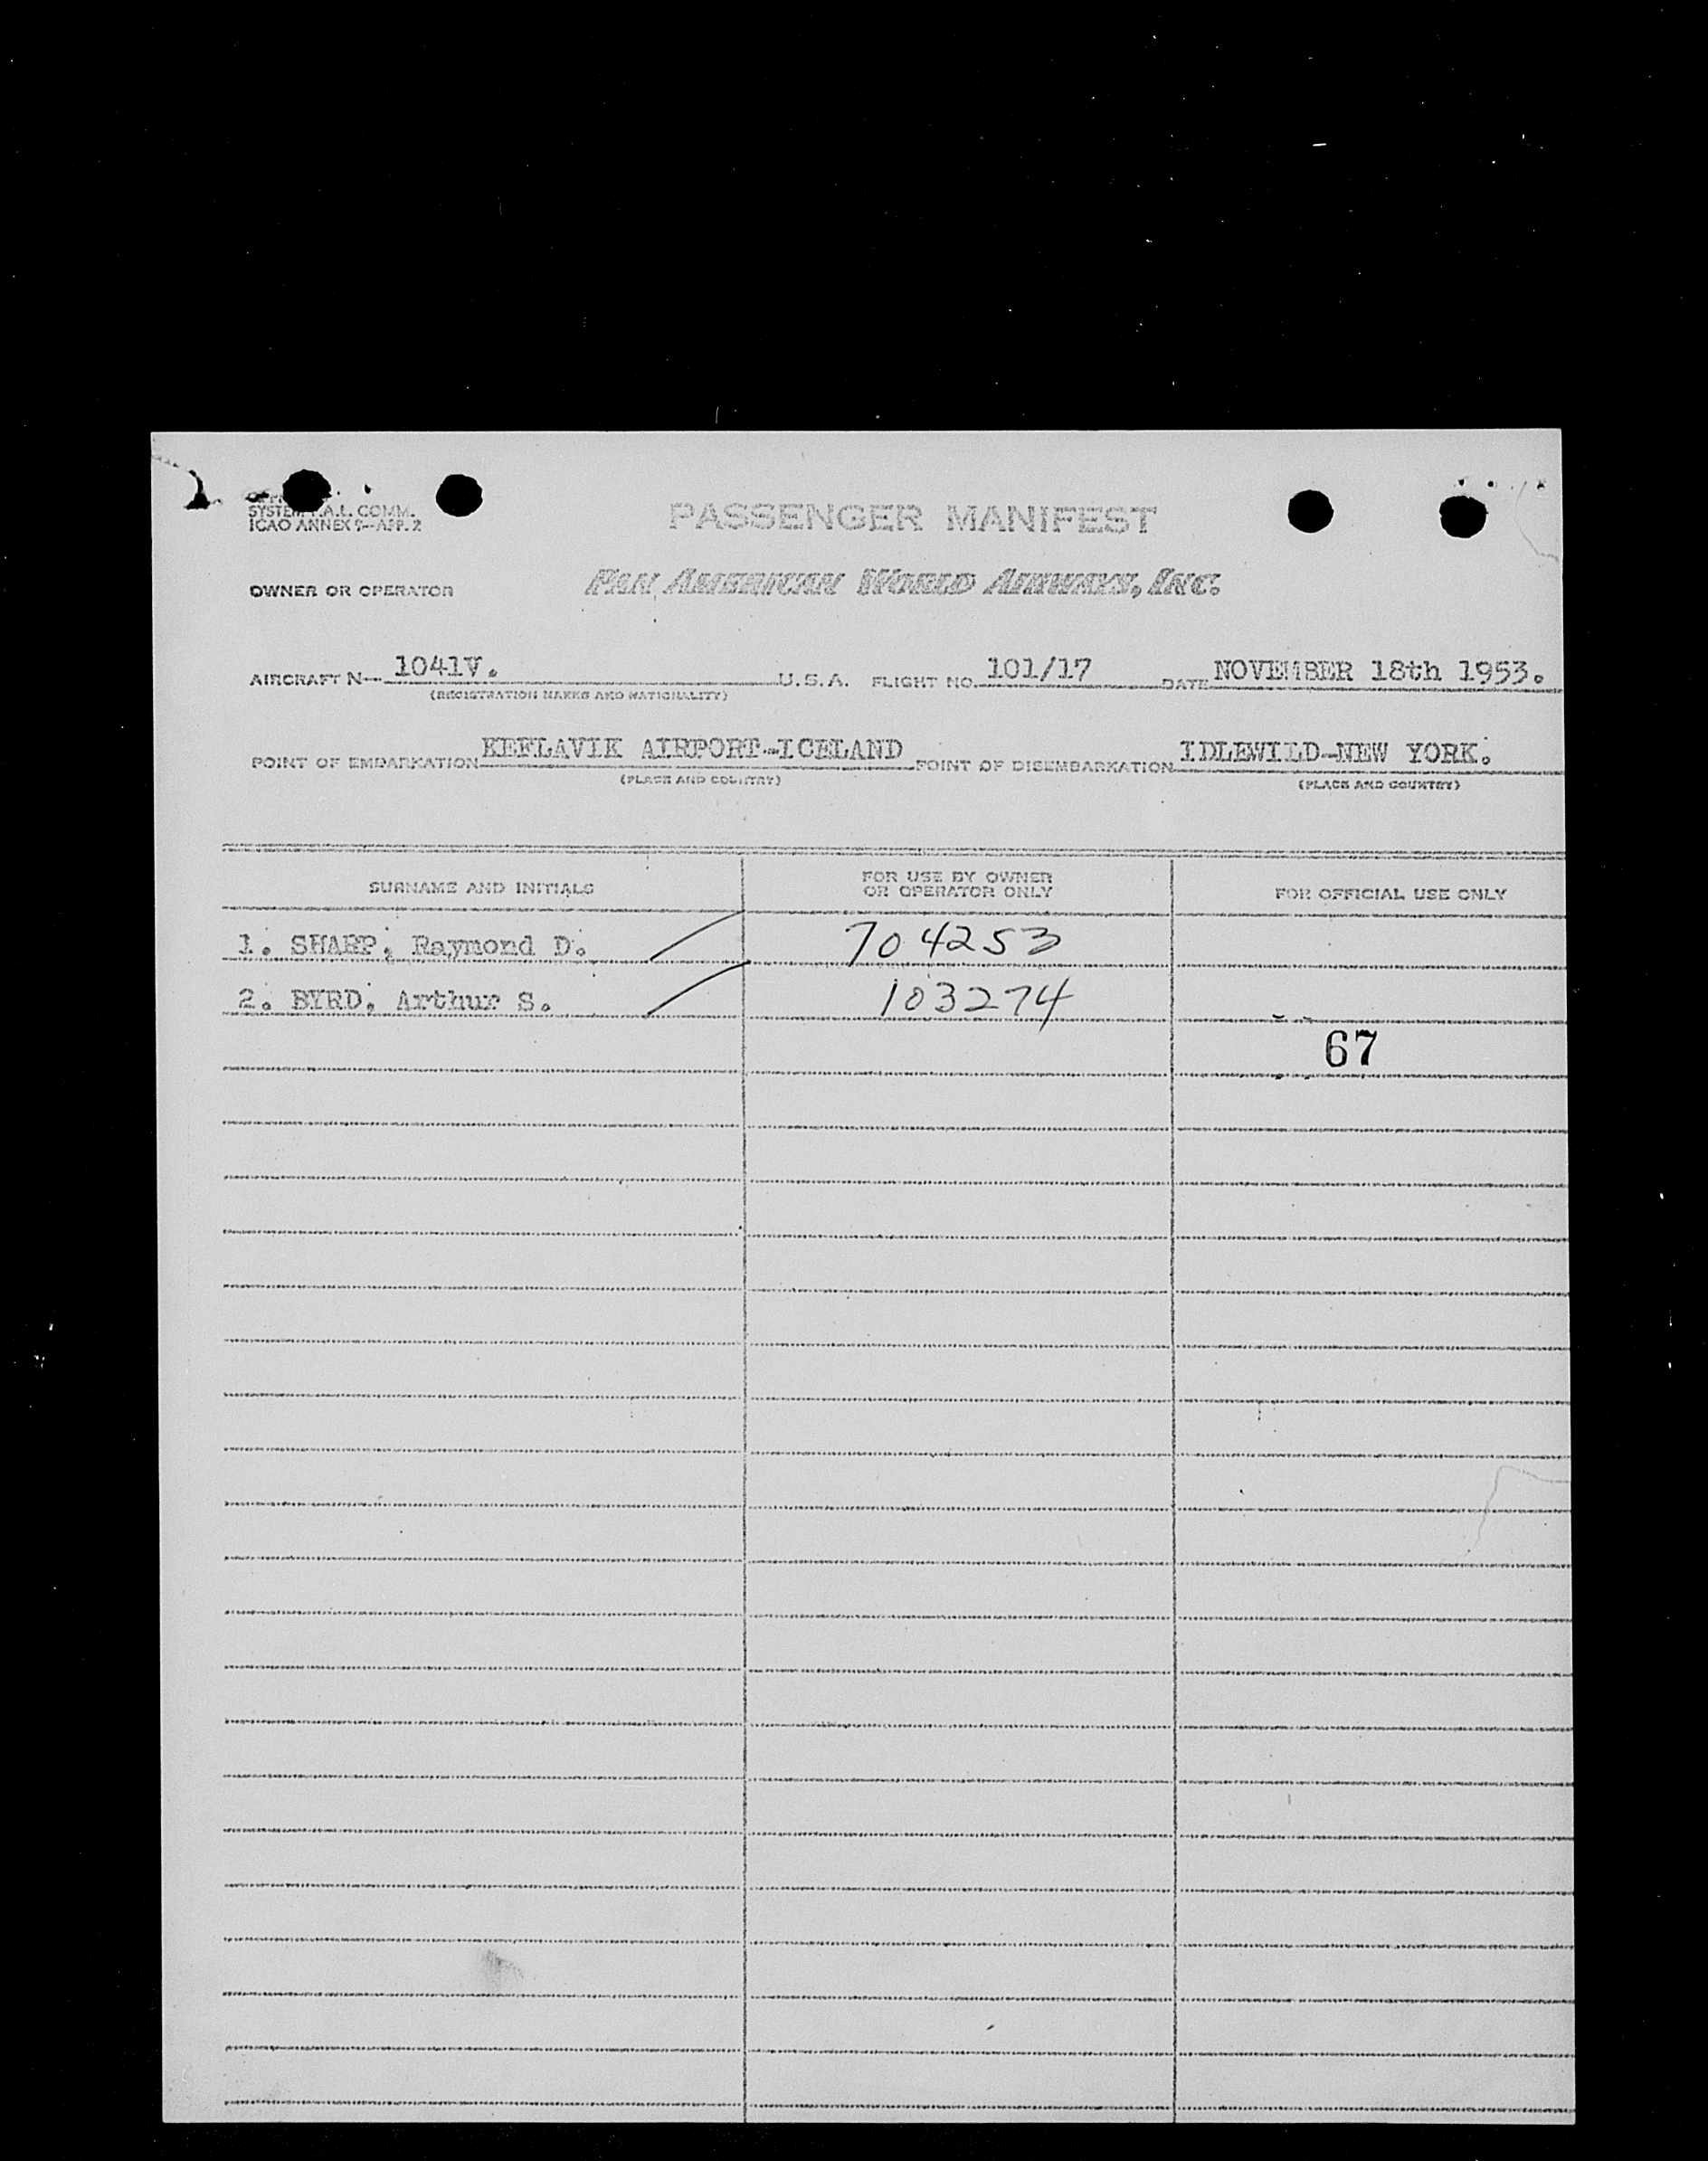 SYSTEM F.A.L. COMM.
ICAO ANNEX 9-APP. 2
PASSENGER MANIFEST
OWNER OR OPERATOR PAN AMERICAN WORLD AIRWAYS, INC.
AIRCRAFT N- 1041V. U.S.A. FLIGHT NO. 101/17 DATE NOVEMBER 18th 1953.
(REGISTRATION MARKS AND NATIONALITY)
POINT OF EMBARKATION KEFLAVIK AIRPORT-ICELAND POINT OF DISEMBARKATION IDLEWILD-NEW YORK.
(PLACE AND COUNTRY) (PLACE AND COUNTRY)
SURNAME AND INITIALS FOR USE BY OWNER OR OPERATOR ONLY FOR OFFICIAL USE ONLY
1. SHARP, Raymond D. 704253
2. BYRD, Arthur S. 103274
67